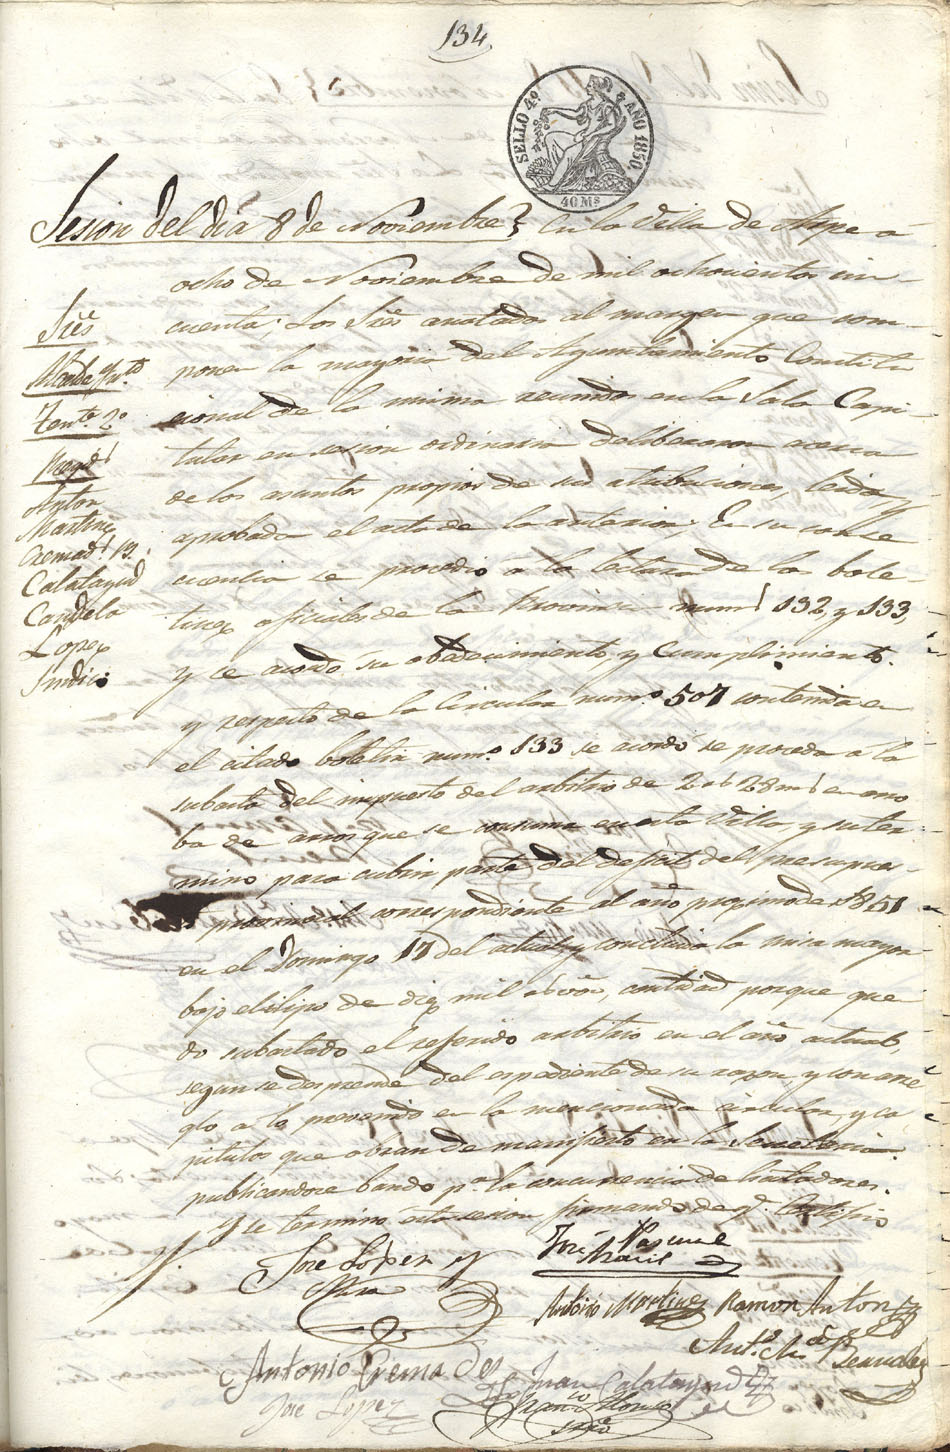 134
SELLO 4º AÑO 1850.
40 Ms
Sesion del dia 8 de Noviembre } En la Villa de Aspe a
ocho de Noviembre de mil ochocientos cin
cuenta; Los Sres anotados al margen que com-
ponen la mayoria del Ayuntamiento Constitu
cional de la misma reunidos en la Sala Capi-
tular en sesion ordinaria deliberaron acerca
de los asuntos propios de sus atribuciones, leida y
aprobada el acta de la anterior; En su conse
cuencia se procedio a la lectura de los bole-
tines oficiales de la Provincia nums 132, y 133,
y se acordó su obedecimiento, y cumplimiento.
y respecto de la Circular numº 507 contenida en
el citado boletin numº 133 se acordó se proceda á la
subasta del impuesto del arbitrio de 2 28 ms en arro
ba de arros que se consuma en esta Villa, y su ter
mino para cubrir parte del deficit del presupues-
provincial correspondiente al año procsimo de 1851
en el Domingo 17 del actual, y concluida la misa mayor
bajo el tipo de diez mil cantidad porque que
do subastado el referido arbitrio en el año actual,
segun se desprende del espediente de su razon y con arre
glo a lo prevenido en la mencionada circular, y ca
pitulos que obran de manifiesto en la Secretaria.
publicandose bando pa la concurrencia de licitadores.
Y se terminó esta sesion firmando de q. Certifico
Sres
Alcalde
Tente 2º
Regds
Anton
Martinez
Cremads
Calatayud
Candela
Lopez
Sindico
Jose López y
José Pascual
Antonio Martinez Ramon Anton
Antonio Cremades
Juan Calatayud
José Lopez
Franco Alonso
Srio